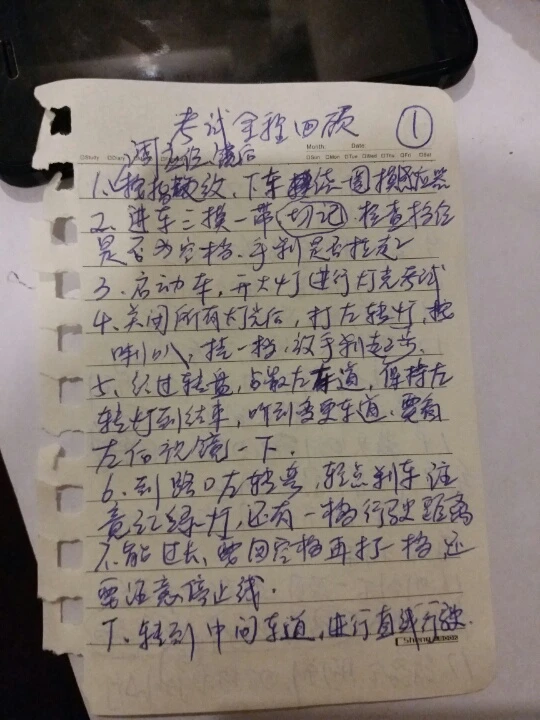 考试全程回顾 ①
Month Date
□Study □Diary □Sun □Mon □Tue □Wed □Thu □Fri □Sat
调 后
1、按指纹、下车绕一圈摸感应器
2、进车三摸一带(切记)检查档位
是否为空档、手刹是否拉起
3、启动车,开大灯进行灯光考试
4、关闭所有灯光后,打左转灯,按
喇叭,挂一档.放手刹起步.
5、经过转盘,占最左车道,保持左
转灯到结束,听到变更车道.要看
左后视镜一下.
6、到路口左转弯,轻点刹车注
意红绿灯,还有一档行驶距离
不能过长,要回空档再打一档,还
要注意停止线.
7、转到中间车道,进行直线行驶.
Sheng